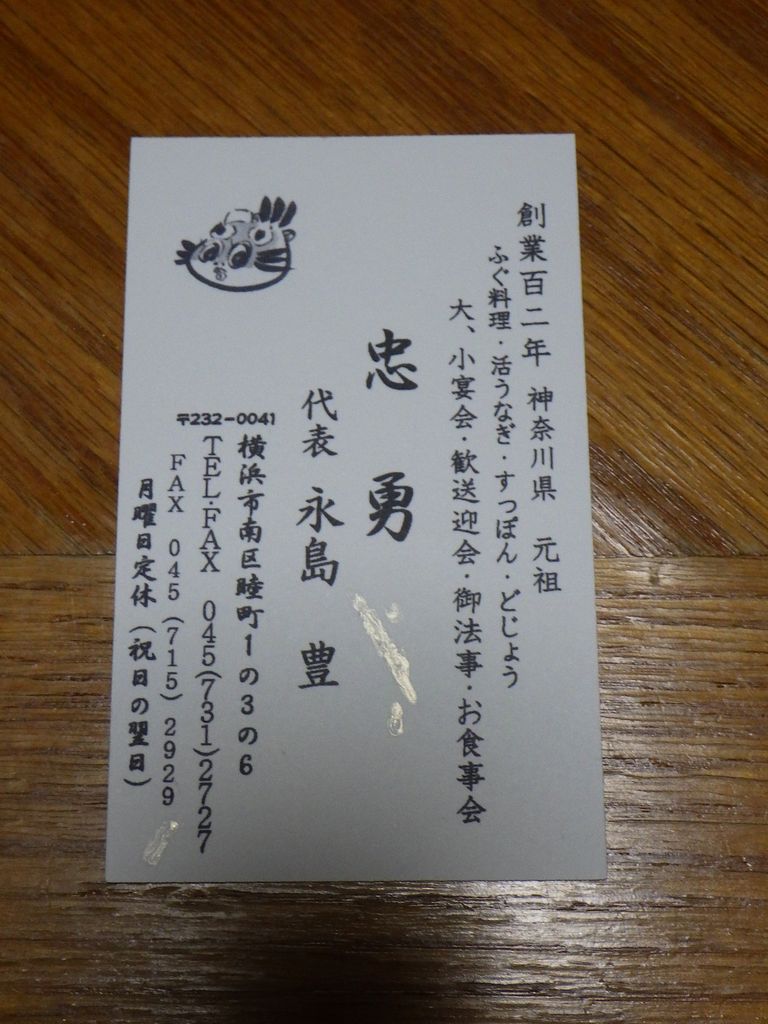 創業百二年 神奈川県 元祖
ふぐ料理・活うなぎ・すっぽん・どじょう
大、小宴会・歓送迎会・御法事・お食事会
忠勇
代表 永島 豊
〒232-0041
横浜市南区睦町1の3の6
TEL・FAX 045(731)2727
FAX 045(715)2929
月曜日定休(祝日の翌日)